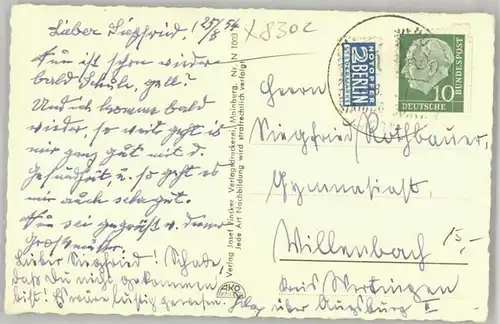 Lieber Siegfried! 25/8 54
X8302
Nun ist schon wieder
bald Schule, gell?
Und ich komme bald
wieder, so weit geht es
mir ganz gut mit d.
Gesundheit, u. so geht es
mir auch sehr gut.
Nun sei gegrüßt v. deiner
Grossmutter.
Lieber Siegfried! Schade,
daß Du nicht gekommen
bist! Es wäre lustig gewesen.
Verlag Josef Pinsker Verlagsdruckerei, Mainburg, Nr. N 1003
Jede Art Nachbildung wird strafrechtlich verfolgt
NOTOPFER
2 BERLIN
STEUERMARKE
DEUTSCHE
BUNDESPOST
10
Herrn
Siegfried Rothbauer,
Gymnasiast
Willenbach
15,-
Kreis Wertingen
über Augsburg II